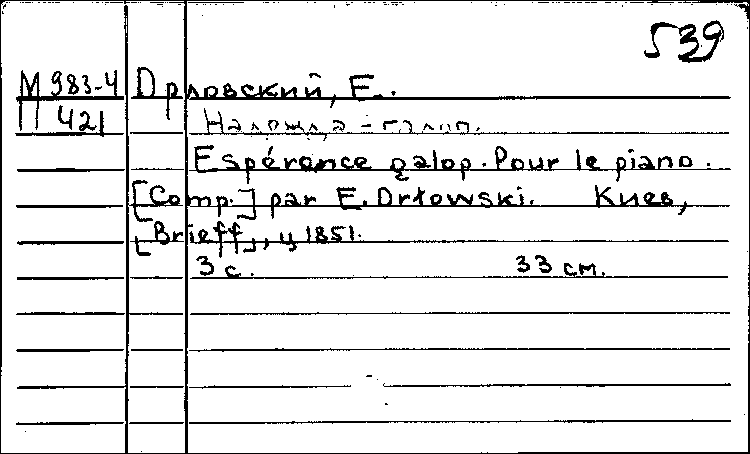 539
М 983-4 Орловский, Е.
П 421 Надежда-галоп.
Espérance galop. Pour le piano.
[Comp.] par E. Orłowski. Киев,
[Brieff], ц 1851.
3 с. 33 см.